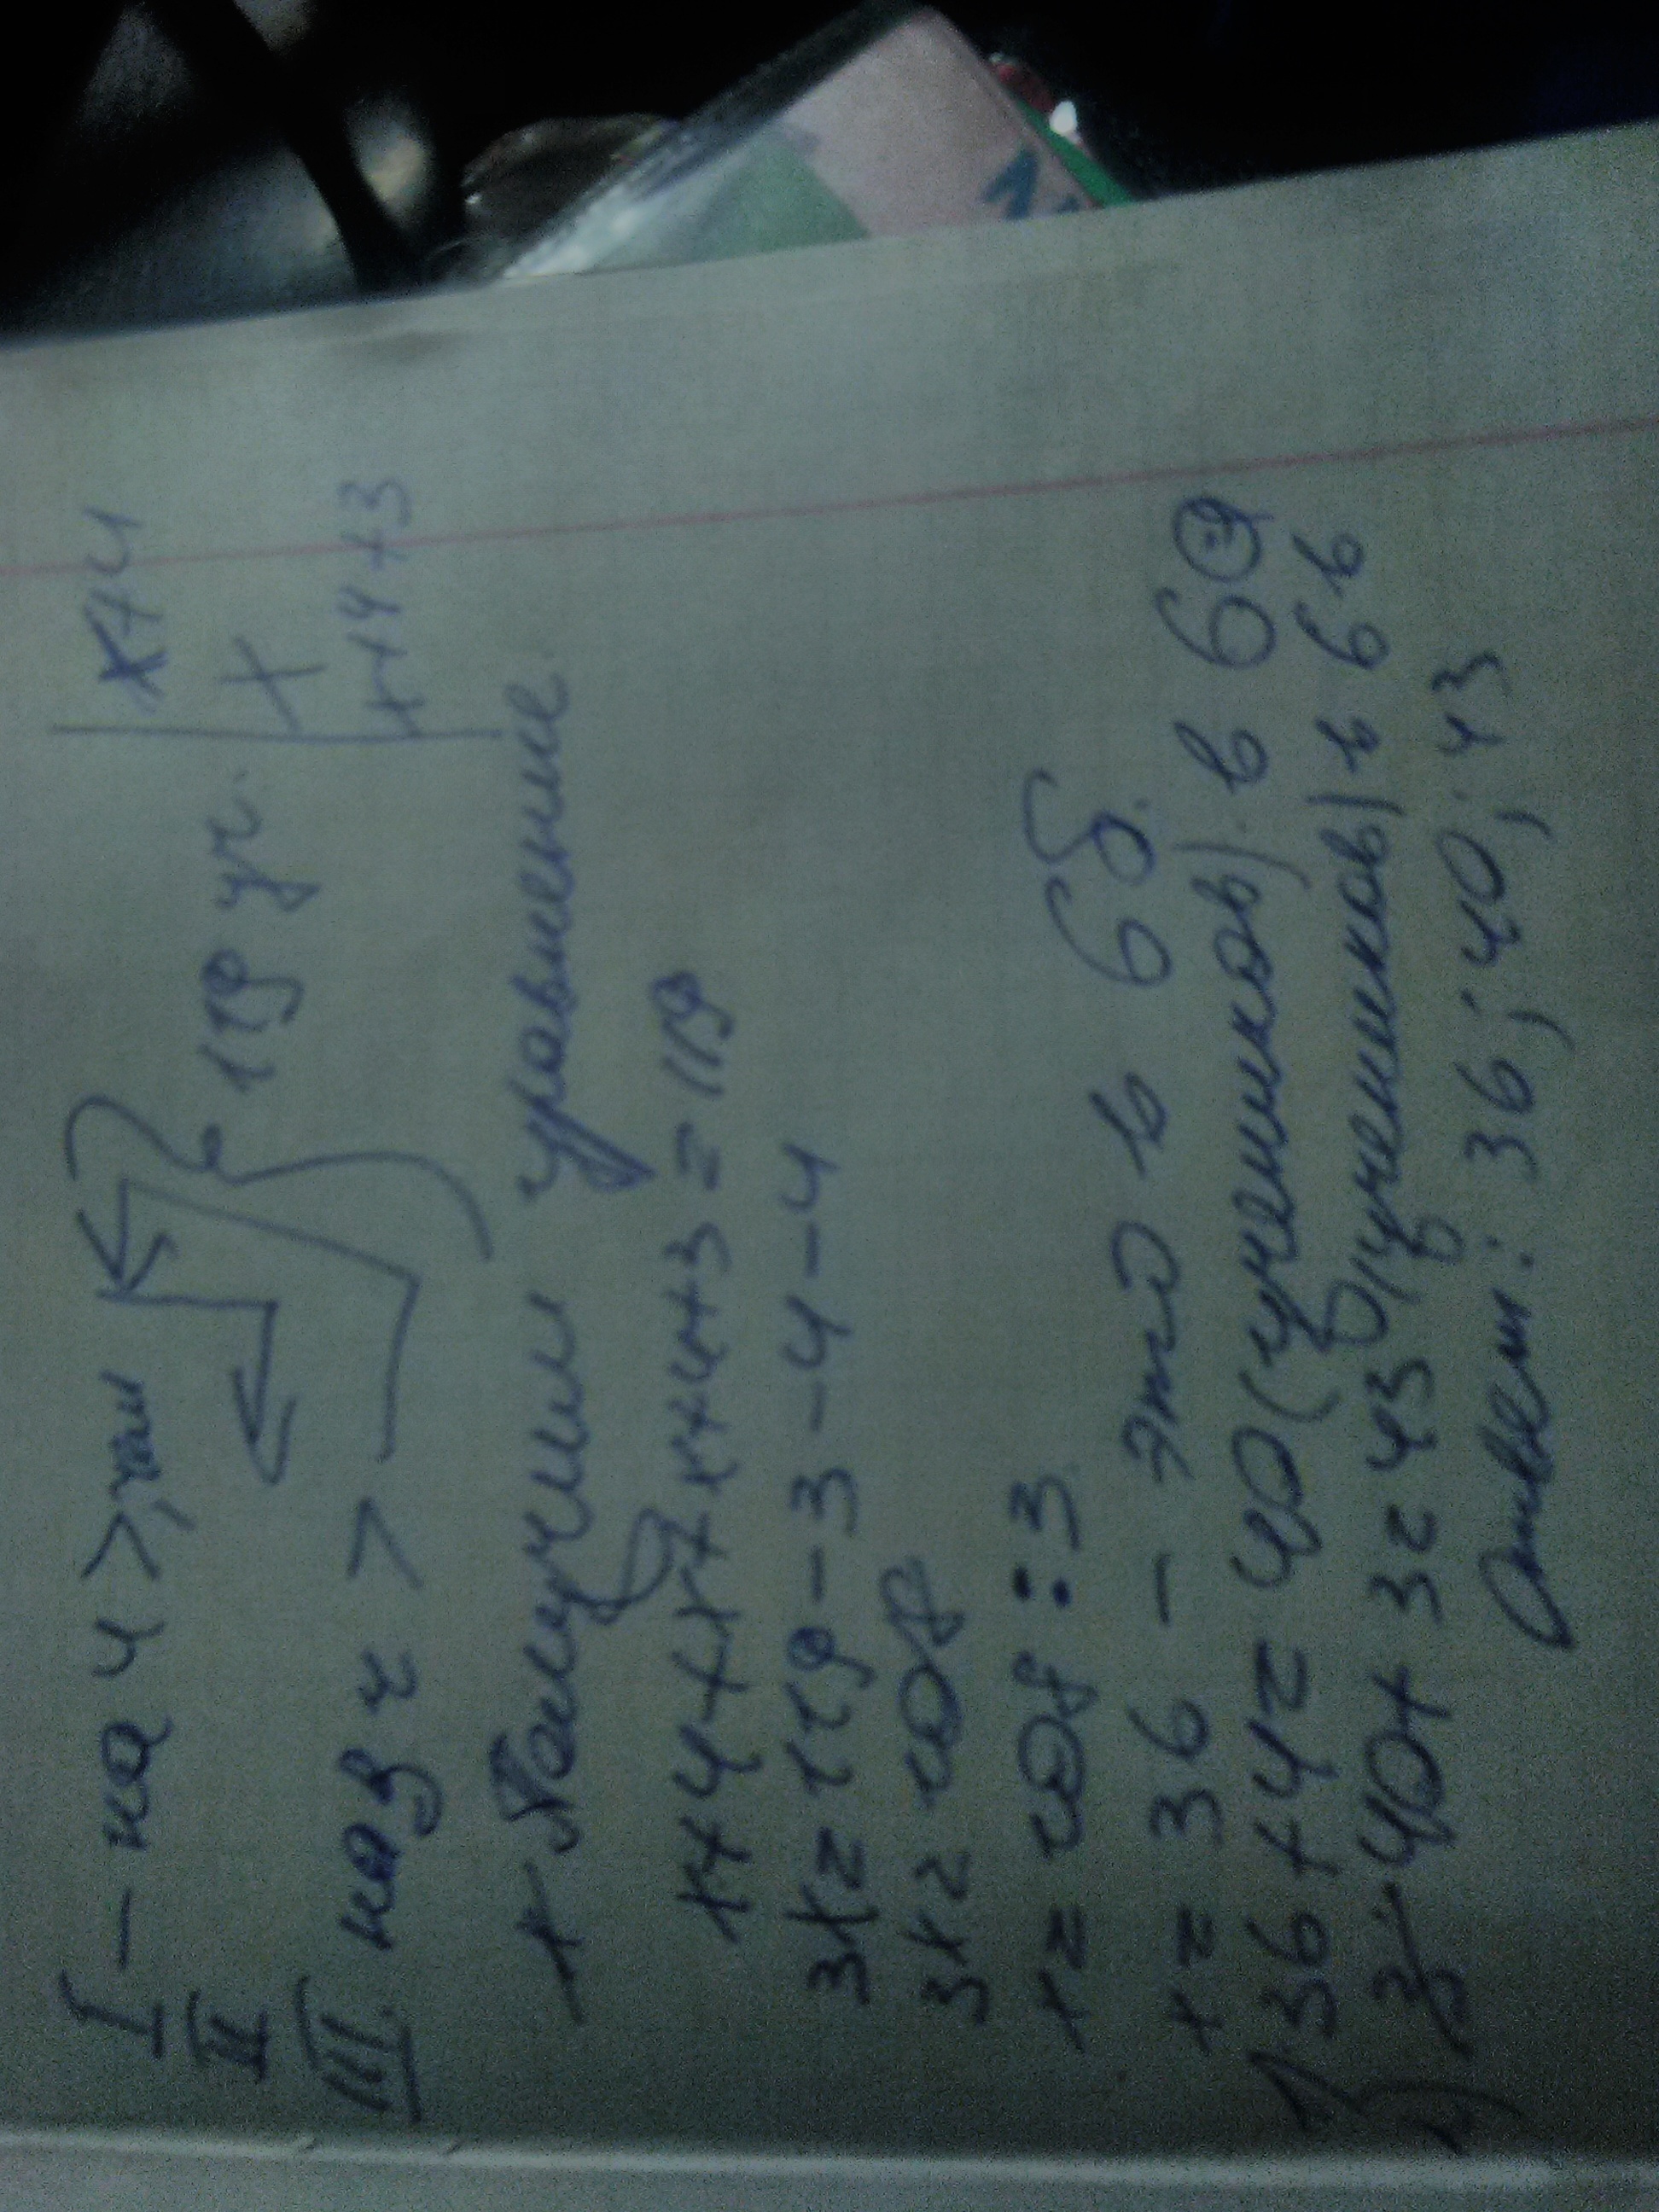 I - на 4 >, чем x+4
II 119 уч. x
III на 3 ч > x+4+3
+ Получим уравнение
x+4+x+x+4+3=119
3x=119-3-4-4
3x=108
x=108:3
x=36 - это в 6б.
1) 36+4=40(учеников). в 6а
2) 40+3=43(учеников) в 6в
Ответ: 36; 40; 43